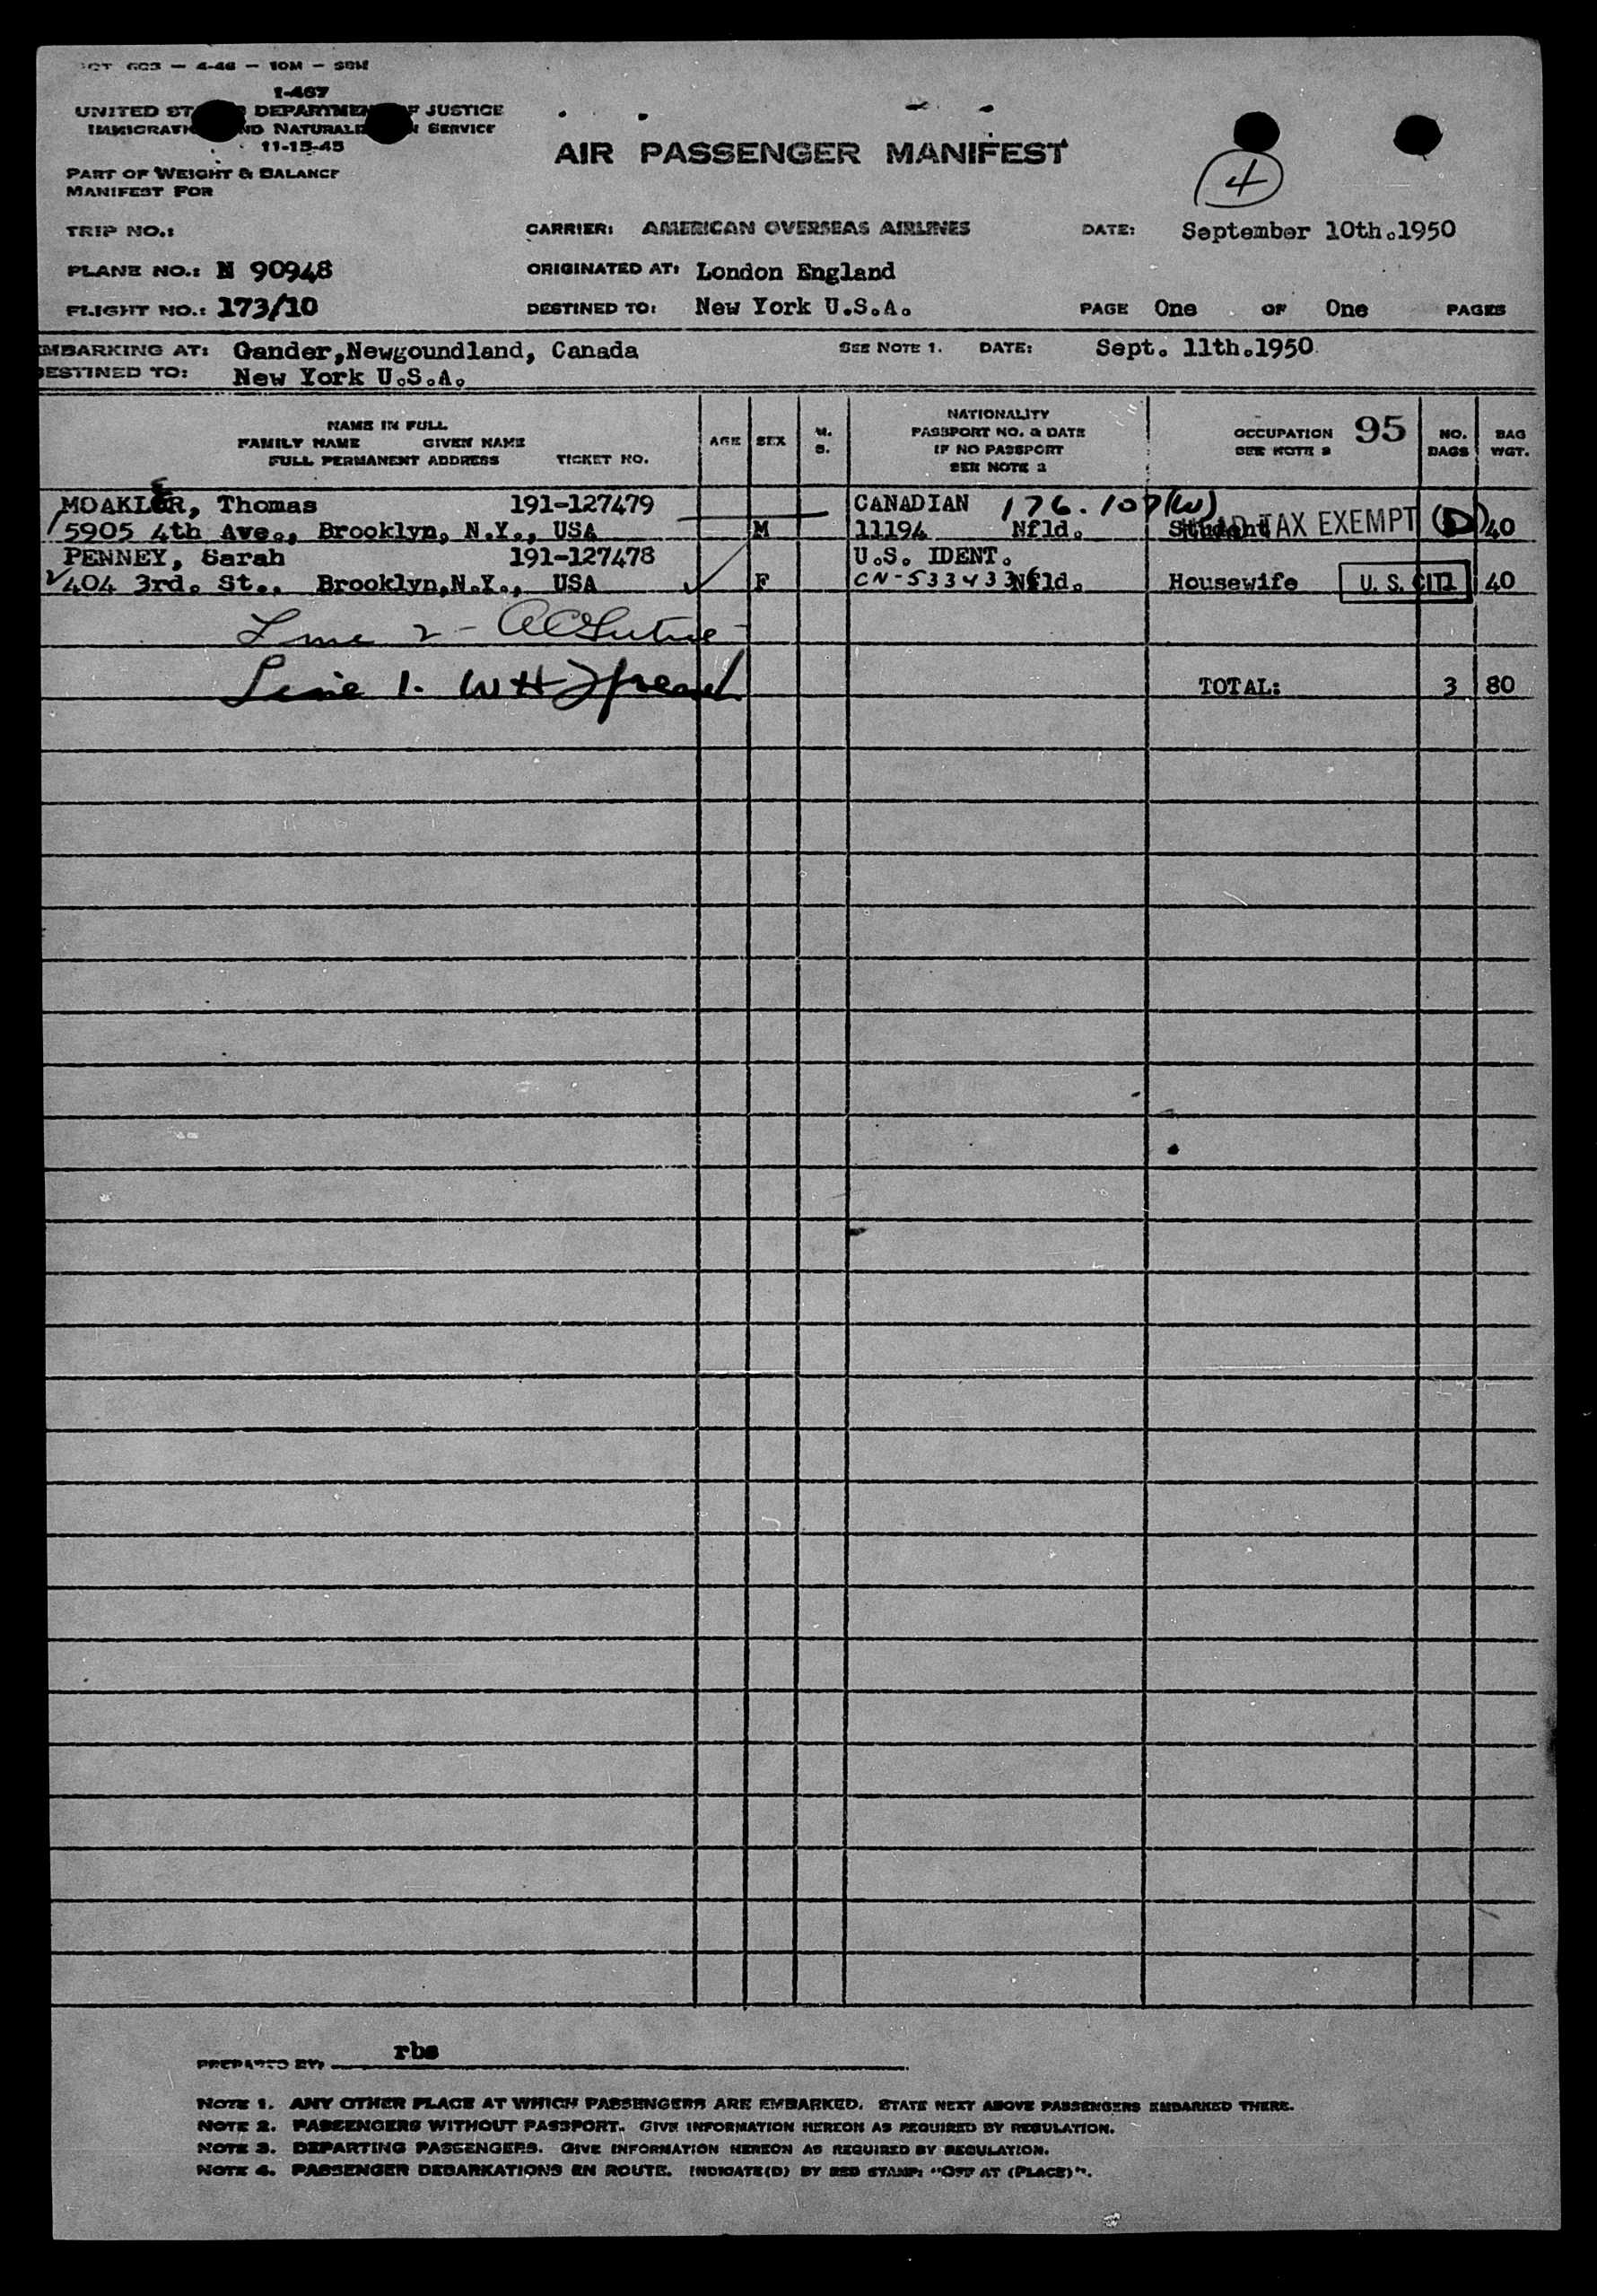 603 — 4-46 — 10M — SBM
I-467
UNITED ST DEPARTMEN F JUSTICE
IMMIGRATI ND NATURALI N SERVICE
11-15-45
AIR PASSENGER MANIFEST
4
PART OF WEIGHT & BALANCE
MANIFEST FOR
TRIP NO.: CARRIER: AMERICAN OVERSEAS AIRLINES DATE: September 10th.1950
PLANE NO.: N 90948 ORIGINATED AT: London England
FLIGHT NO.: 173/10 DESTINED TO: New York U.S.A. PAGE One OF One PAGES
MBARKING AT: Gander,Newgoundland, Canada SEE NOTE 1. DATE: Sept. 11th.1950
DESTINED TO: New York U.S.A.
NAME IN FULL
FAMILY NAME GIVEN NAME
FULL PERMANENT ADDRESS TICKET NO. AGE SEX M. S.
NATIONALITY
PASSPORT NO. & DATE
IF NO PASSPORT
SEE NOTE 2
OCCUPATION 95
SEE NOTE 3
NO. BAGS
BAG WGT.
MOAKLER, Thomas 191-127479 CANADIAN 176.107(W)
5905 4th Ave., Brooklyn, N.Y., USA M 11194 Nfld. Student TAX EXEMPT (D) 40
PENNEY, Sarah 191-127478 U.S. IDENT.
404 3rd. St., Brooklyn,N.Y., USA F CN-533433 Nfld. Housewife U. S. CITI 40
Line 2 -
Line 1. WH TOTAL: 3 80
PREPARED BY: rbs
NOTE 1. ANY OTHER PLACE AT WHICH PASSENGERS ARE EMBARKED. STATE NEXT ABOVE PASSENGERS EMBARKED THERE.
NOTE 2. PASSENGERS WITHOUT PASSPORT. GIVE INFORMATION HEREON AS REQUIRED BY REGULATION.
NOTE 3. DEPARTING PASSENGERS. GIVE INFORMATION HEREON AS REQUIRED BY REGULATION.
NOTE 4. PASSENGER DEBARKATIONS EN ROUTE. INDICATE(D) BY RED STAMP: "OFF AT (PLACE)".